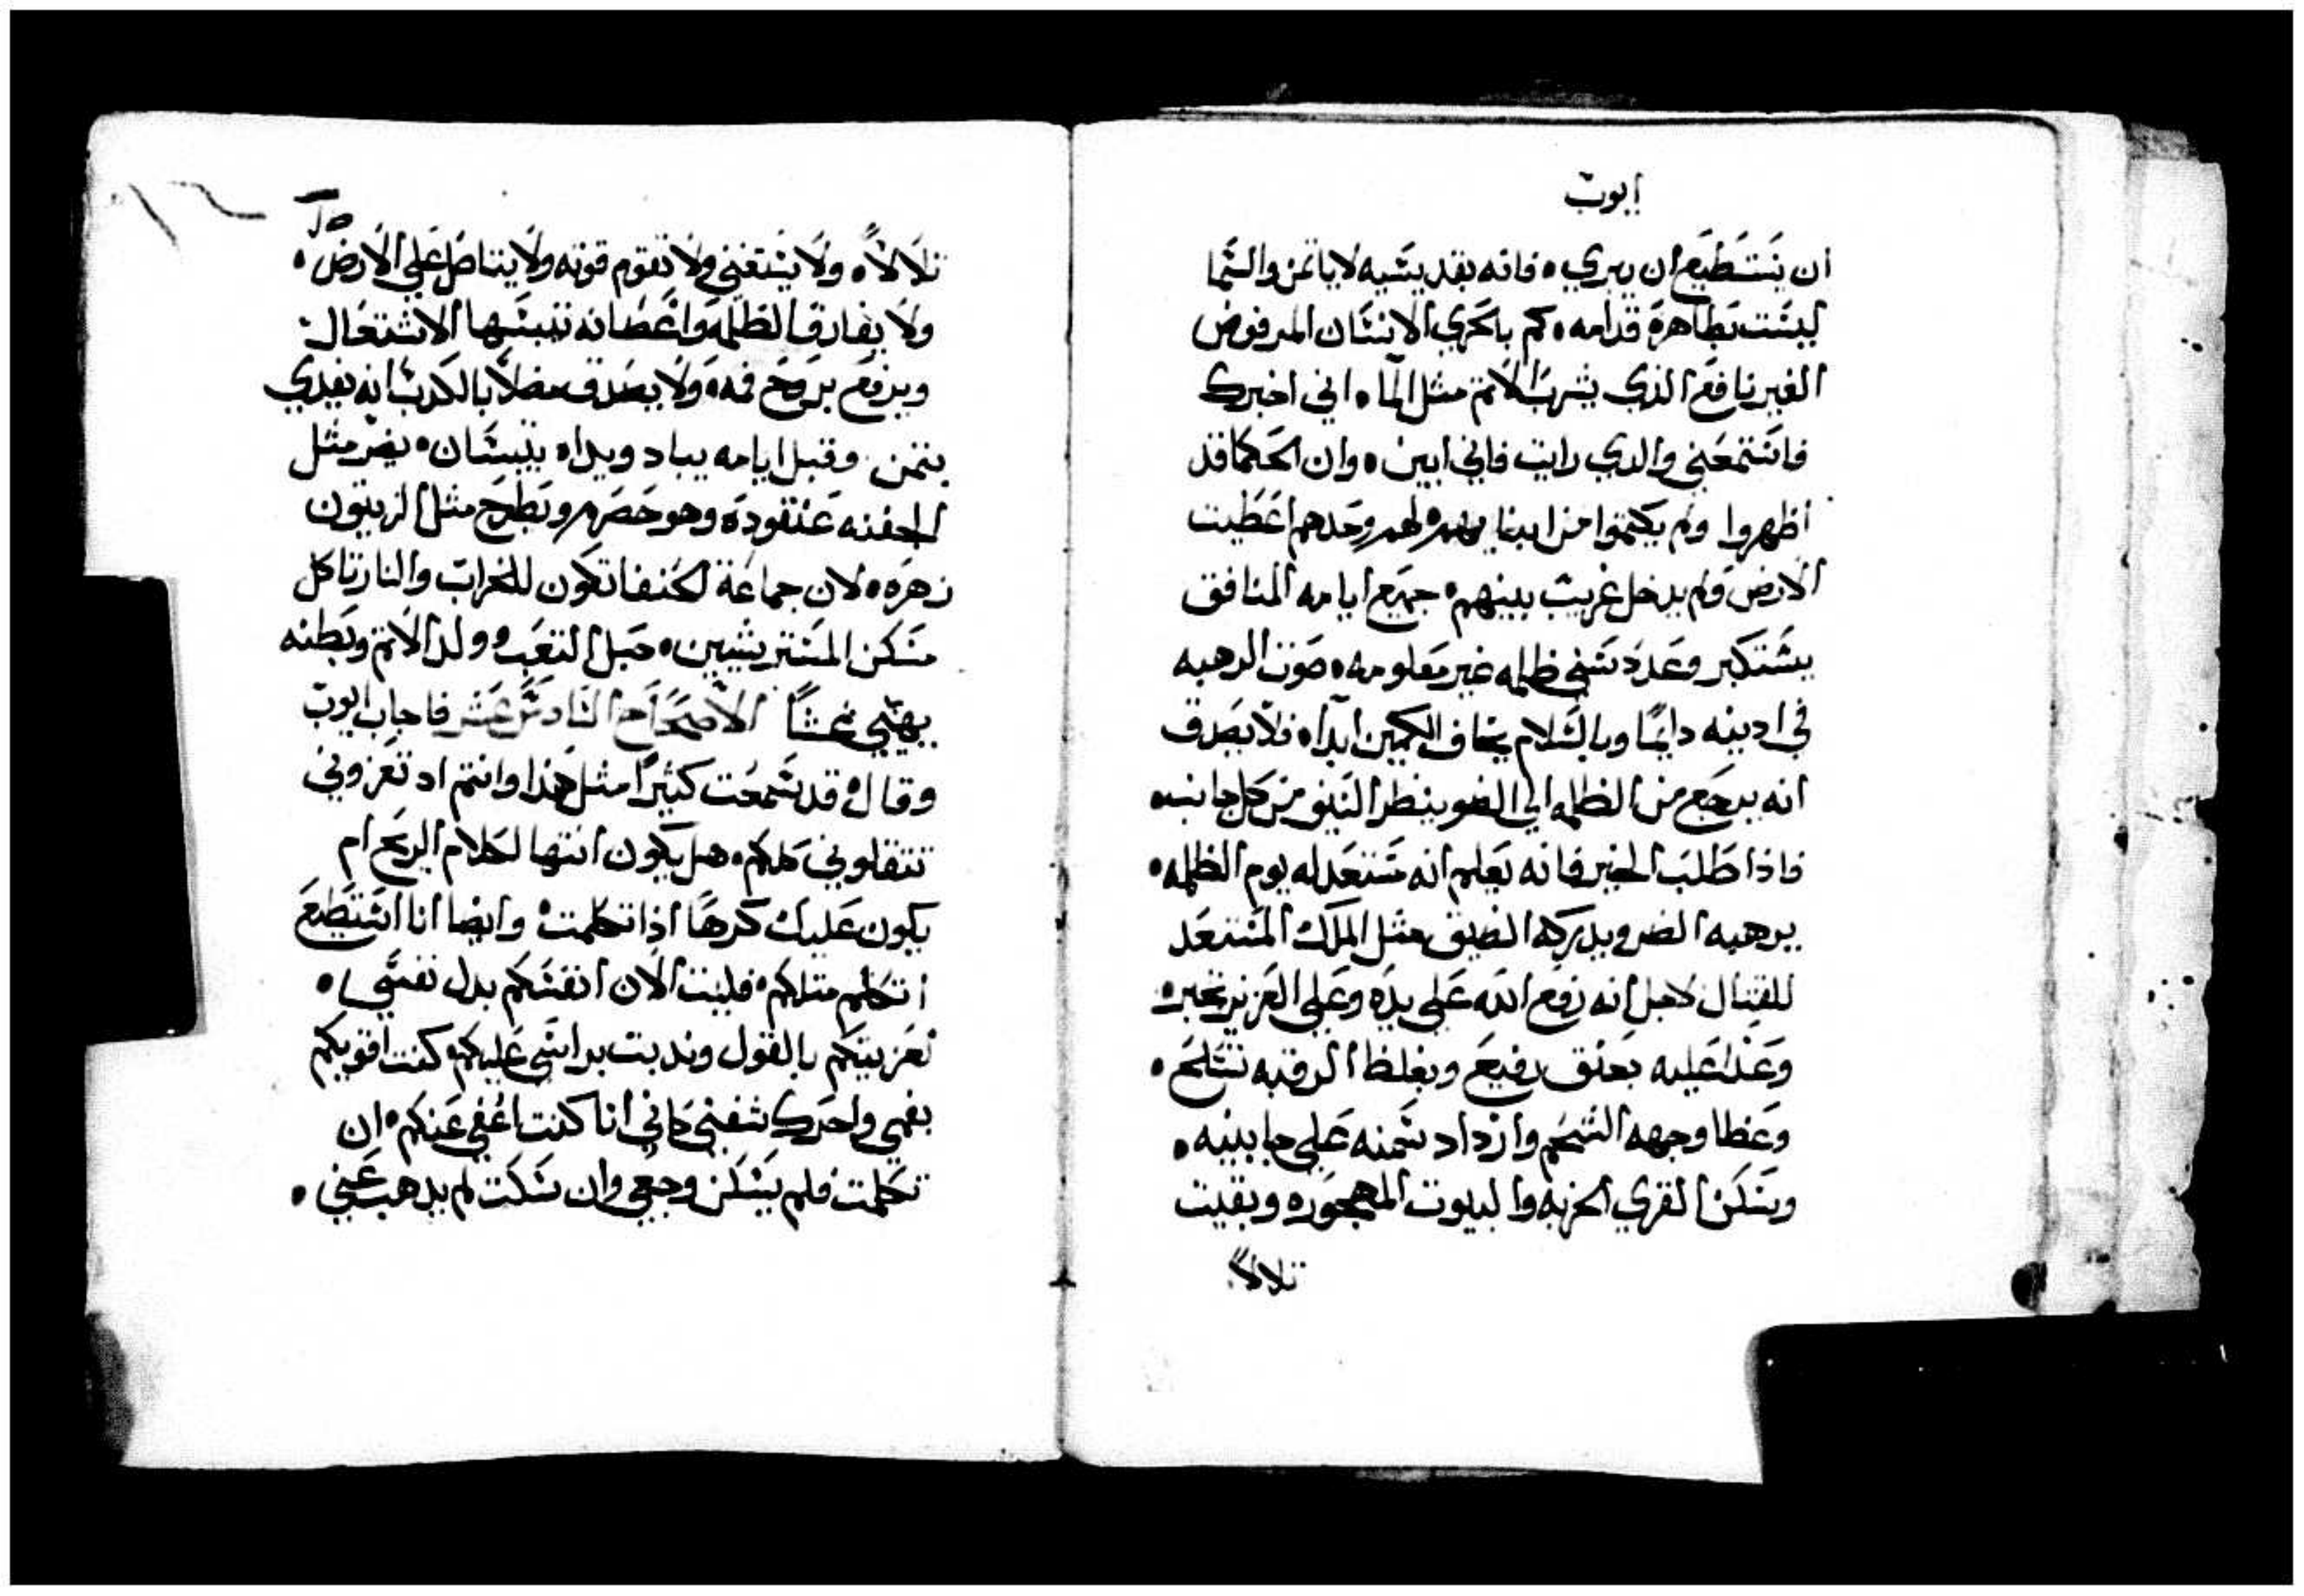 ايوب
ان يستطيع ان يبري ه فانه بقديسيه لا ياتمن والسما
ليست بطاهرة قدامه ه كم بالحري الانسان المرفوض
الغير نافع الذي يشرب الاتم مثل الما ه اني اخبرك
فاستمعني والدي رايت فاني ابين ه وان الحكما قد
اظهروا ولم يكتموا من ابنايهم ه لهم وحدهم اعطيت
الارض ولم يدخل غريب بينهم ه جميع ايامه المنافق
يستكبر وعدد سني ظلمه غير معلومه ه صوت الرهبه
في ادينه دايمًا وبالسلام يخاف الكمين ابدا ه فلا يصدق
انه يرجع من الظلمه الي الضو ينظر السيف من كل جانب ه
فاذا طلب الخبز فانه يعلم انه مستعد له يوم الظلمه ه
يرهبه الضر ويدركه الضيق مثل الملك المستعد
للقتال لاجل انه رفع الله علي يده وعلي العزيز تجبر ه
وعدا عليه بعنق رفيع وبغلظ الرقبه تسلح ه
وغطا وجهه الشحم وازداد سمنه علي جابينه ه
وسكن القري الخربه والبيوت المهجوره وبقيت
تلالاً
تلالاً ه ولا يستغني ولا تقوم قوته ولا يتاصل علي الارض ه
ولا يفارق الظلمه واغصانه تيبسها الاشتعال
ويرفع بروح فمه ولا يصدق مضلاً بالكدب انه يفدي
بتمن وقبل ايامه يباد ويداه تيبسان ه يضر مثل
الجفنه عنقوده وهو حصرم ويطرح مثل الزيتون
زهره ه لان جماعة الحنفا تكون للخراب والنار تاكل
مسكن المسترشيين ه حبل التعب وولد الاتم وبطنه
يهيي غشاً الاصحاح السادس عشر فاجاب ايوب
وقال قد سمعت كثيرًا مثل هذا وانتم اد تعزوني
تتقلوني كلكم ه هل يكون انتها لكلام الريح ام
يكون عليك كرهًا اذا تكلمت وايضا انا استطيع
اتكلم متلكم ه فليت الان انفسكم بدل نفسي ه
لعزيتكم بالقول وندبت براسي عليكم ه كنت اقويكم
بفمي واحرك شفتي كاني انا كنت اعفي عنكم ه ان
تكلمت فلم يسكن وجعي وان سكت لم يدهب عني ه